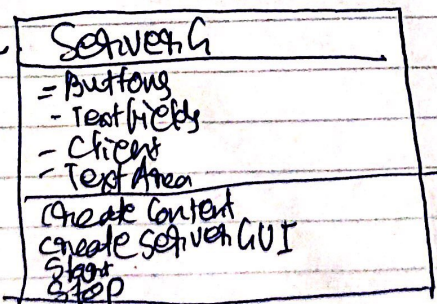 ServerG
= Buttons
- Textfields
- Client
- Text Area
Create Content
create server GUI
Start
Stop